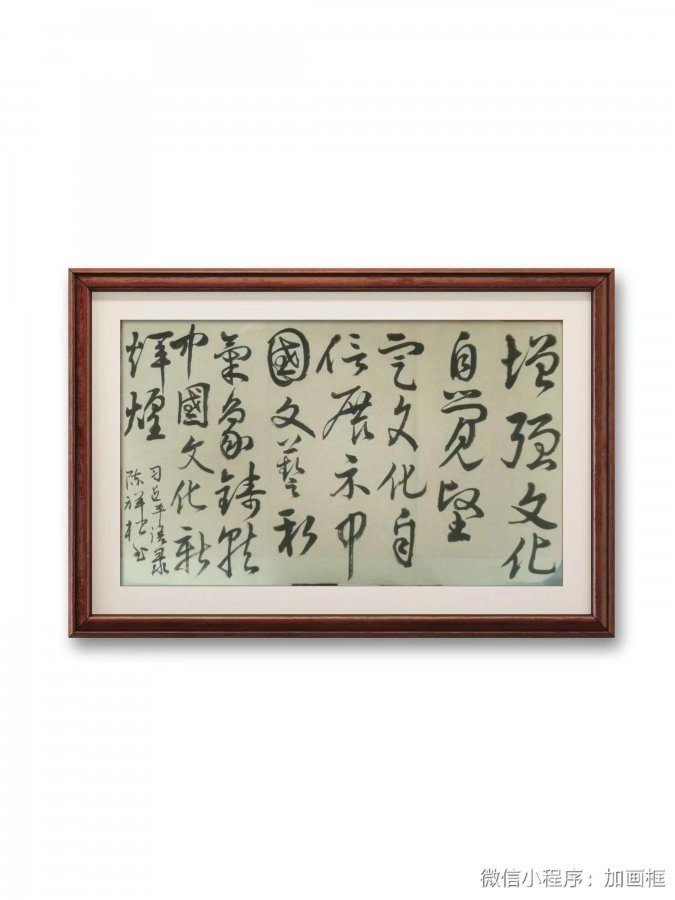 增强文化
自觉坚
定文化自
信展示中
國文藝新
氣象鑄就
中國文化新
辉煌
习近平语录
陈祥书
微信小程序：加画框